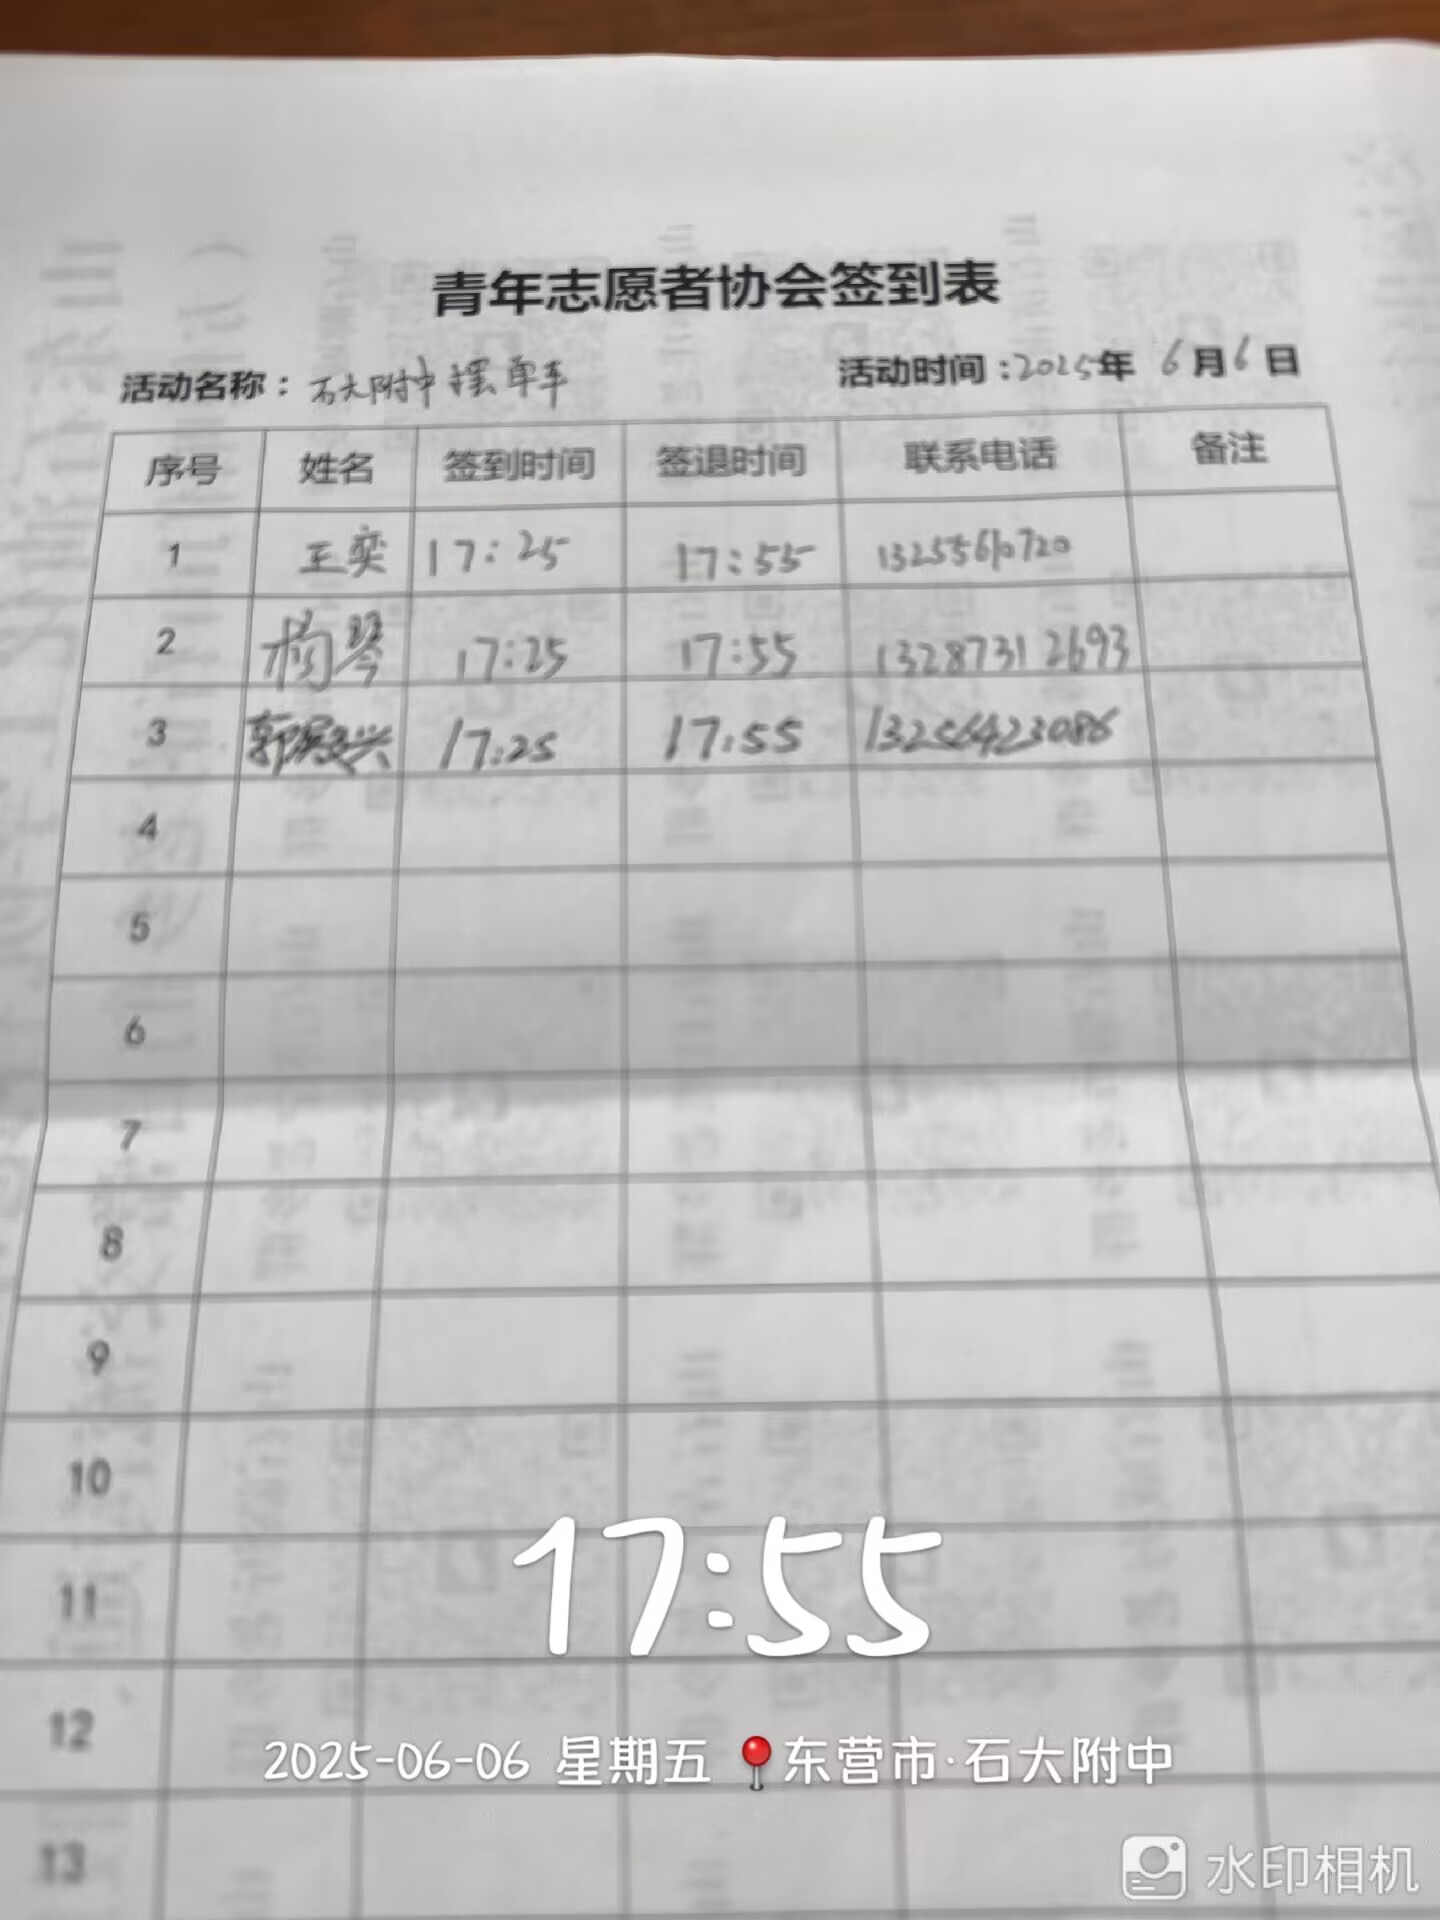 青年志愿者协会签到表
活动名称：石大附中摆单车 活动时间：2025年 6月6日
序号 姓名 签到时间 签退时间 联系电话 备注
1 王奕 17:25 17:55
2 杨琴 17:25 17:55 13287312693
3 郭展兴 17:25 17:55 13256423086
4
5
6
7
8
9
10
11
12
13
17:55
2025-06-06 星期五 东营市·石大附中
水印相机